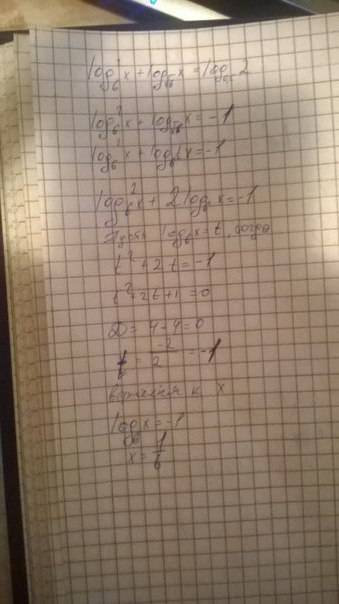 log₆²x + log_√6 x = log_0,5 2
log₆²x + log_√6 x = -1
log₆²x + log_√6 x = -1
log₆²x + 2 log₆x = -1
Пусть log₆x = t, тогда
t² + 2t = -1
t² + 2t + 1 = 0
D = 4 - 4 = 0
t = -2/2 = -1
Вернемся к x
log₆x = -1
x = 1/6